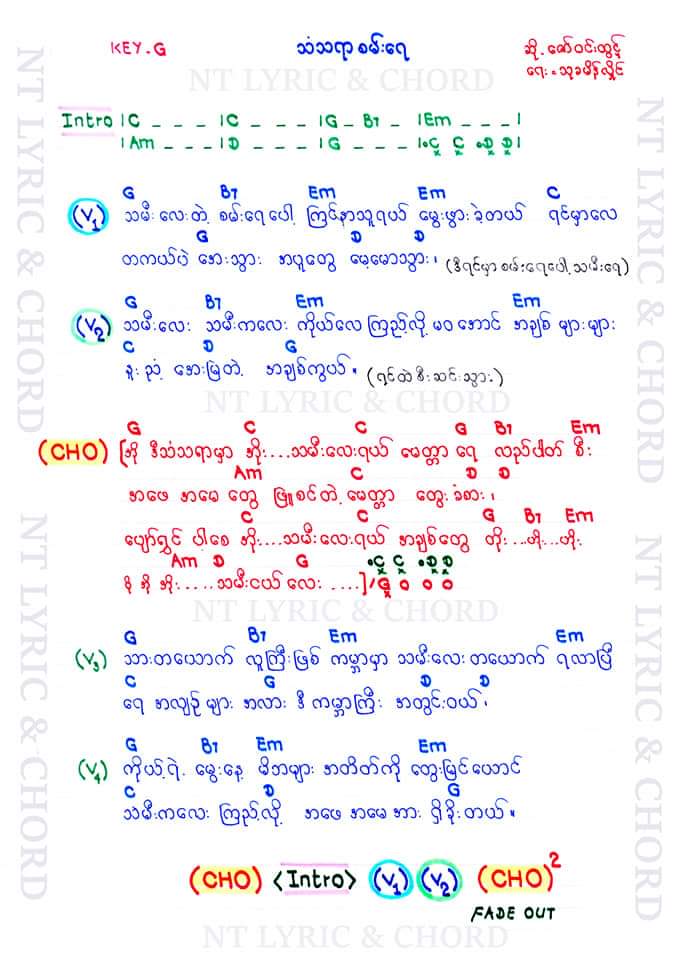 KEY.G သံသရာစမ်းရေ ဆို. ဇော်ဝင်းထွဋ်
ရေး = သုခမိန်လှိုင်
NT LYRIC & CHORD
Intro |C _ _ _ |C _ _ _ |G _ B7 _ |Em _ _ _|
|Am _ _ _ |D _ _ _ |G _ _ _ |.C C .D D|
G B7 Em Em C
(V1) သမီးလေးတဲ့ စမ်းရေပေါ့ ကြင်နာသူရယ် မွေးဖွားခဲ့တယ် ရင်မှာလေ
G D D
တကယ်ပဲ အေးသွား အပူတွေ မေ့မောသွား၊ (ဒီရင်မှာ စမ်းရေပေါ့ သမီးရေ)
G B7 Em Em
(V2) သမီးလေး သမီးကလေး ကိုယ်လေ ကြည့်လို့ မဝအောင် အချစ်များများ
C D G
နူးညံ့ အေးမြတဲ့ အချစ်ကွယ်။ (ရင်ထဲစီးဆင်းသွား)
NT LYRIC & CHORD
G C C G B7 Em
(CHO) [အို ဒီသံသရာမှာ အိုး....သမီးလေးရယ် မေတ္တာ ရေ လည်ပါတ် စီး
Am C D D
အဖေ အမေ တွေ ဖြူစင်တဲ့ မေတ္တာ တွေးခံစား၊
C C G B7 Em
ပျော်ရွှင် ပါစေ အိုး....သမီးလေးရယ် အချစ်တွေ တိုး...ဟိုး...ဟိုး
Am D G .C C .D D
အို အိုး.....သမီးငယ် လေး ....]/G o o o
NT LYRIC & CHORD
G B7 Em Em
(V3) သားတယောက် လူကြီးဖြစ် ကမ္ဘာမှာ သမီးလေးတယောက် ရလာပြီ
C G D D
ရေ အလျဉ်များ အလား ဒီ ကမ္ဘာကြီး အတွင်းဝယ်၊
G B7 Em Em
(V4) ကိုယ့်ရဲ့ မွေးနေ့ မိဘများ အတိတ်ကို တွေးမြင်ယောင်
C D G
သမီးကလေး ကြည့်လို့ အဖေ အမေအား ရှိခိုးတယ်။
(CHO) <Intro> (V1) (V2) (CHO)2
FADE OUT
NT LYRIC & CHORD
NT LYRIC & CHORD
NT LYRIC & CHORD
NT LYRIC & CHORD
NT LYRIC & CHORD